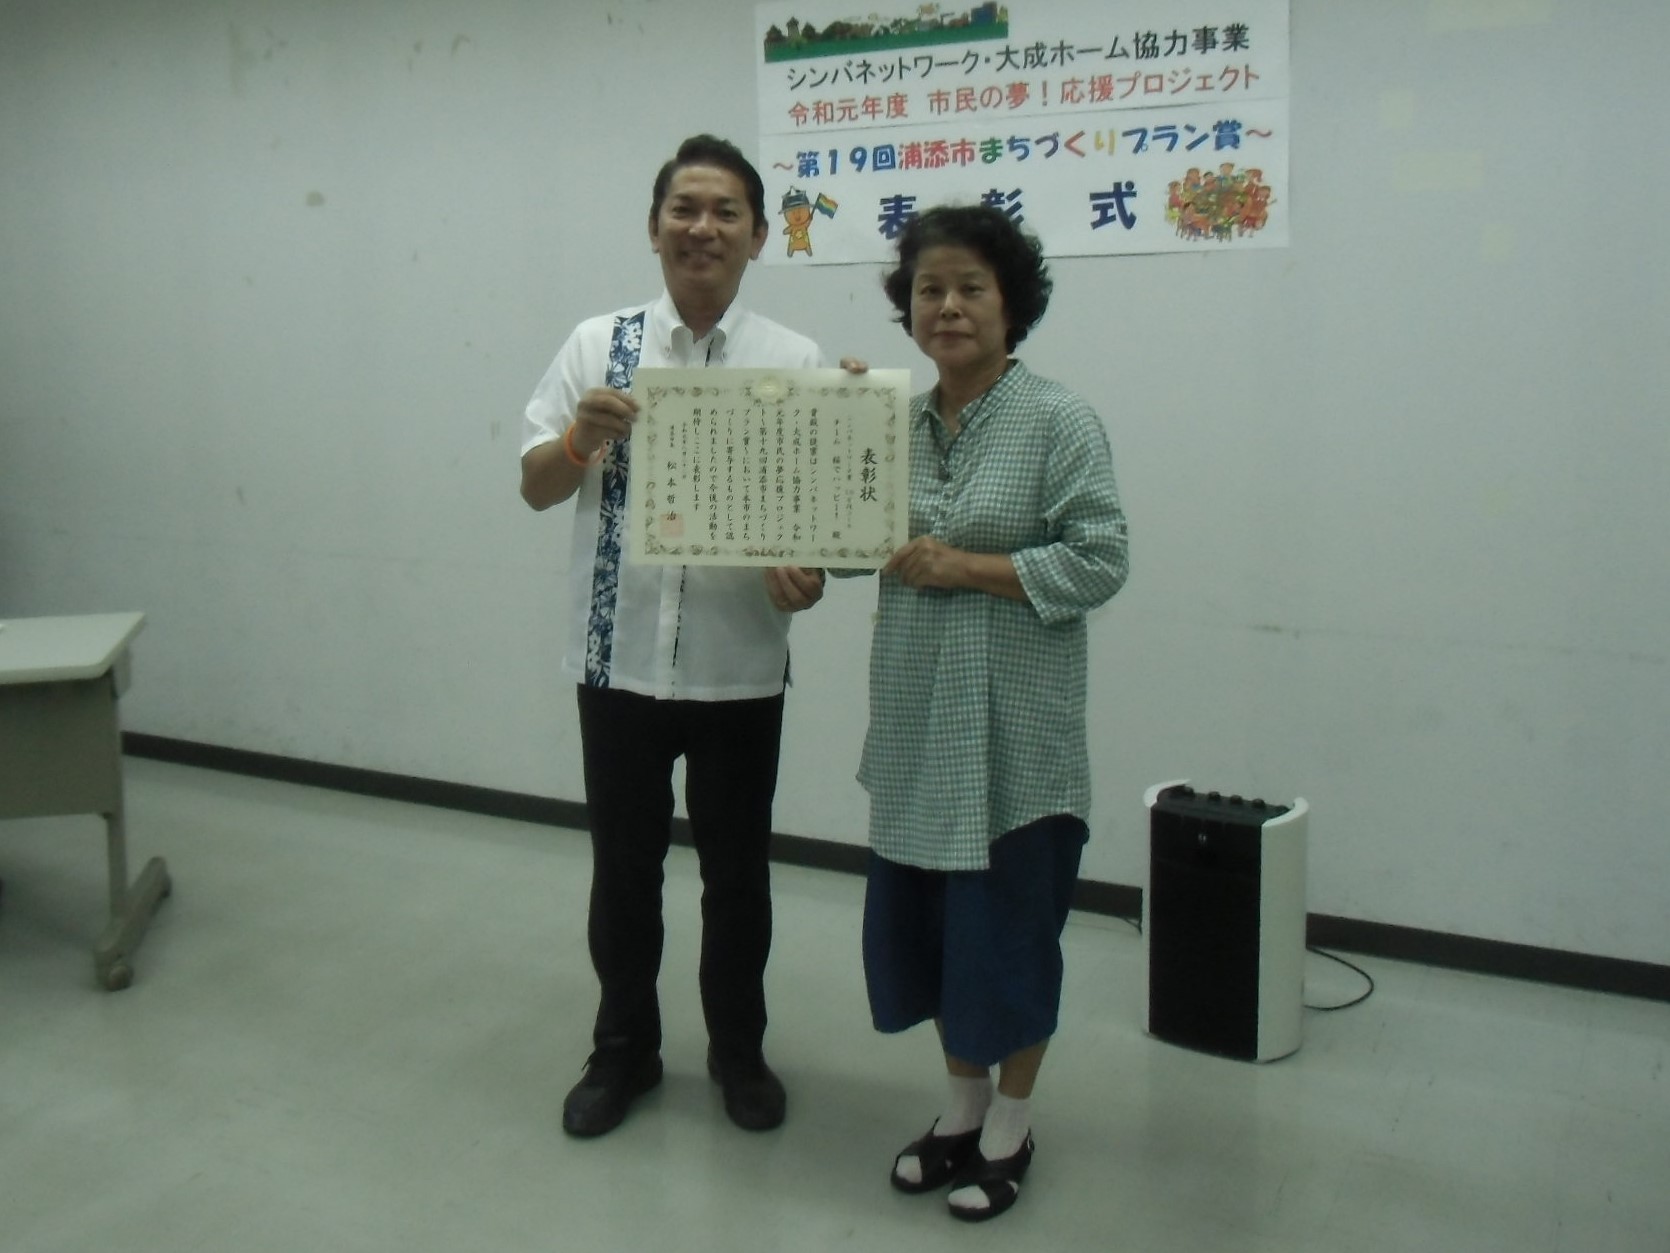 シンバネットワーク・大成ホーム協力事業
令和元年度 市民の夢！応援プロジェクト
～第19回浦添市まちづくりプラン賞～
表彰式
表彰状
チーム 桜でハッピー 殿
貴殿の提案はシンバネットワー
ク・大成ホーム協力事業 令和
元年度市民の夢応援プロジェク
ト～第十九回浦添市まちづくり
プラン賞～において本市のまち
づくりに寄与するものとして認
められましたので今後の活動を
期待しここに表彰します
浦添市長 松本哲治